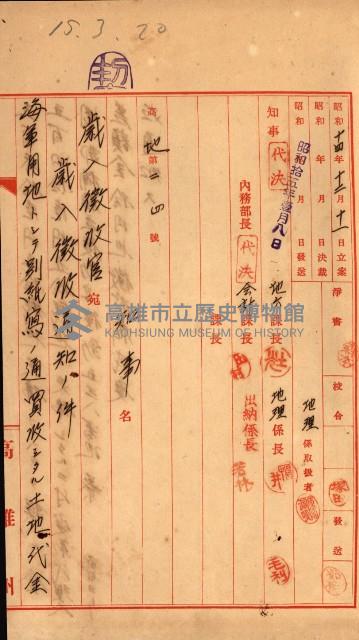 15.3.20
昭和十四年十二月十一日立案
昭和 年 月 日決裁
昭和 年 月 日發送
昭和拾五年壹月八日
淨書
校合
發送
地理係取扱者
知事 代決
地方課長
地理係長
毛利
內務部長 代決
會計課長
出納係長
若林
高地第二一四號
知事名
歲入徵收官宛
歲入徵收通知ノ件
海軍用地トシテ別紙寫ノ通買收シタル土地代金
高雄州
高雄市立歷史博物館
KAOHSIUNG MUSEUM OF HISTORY